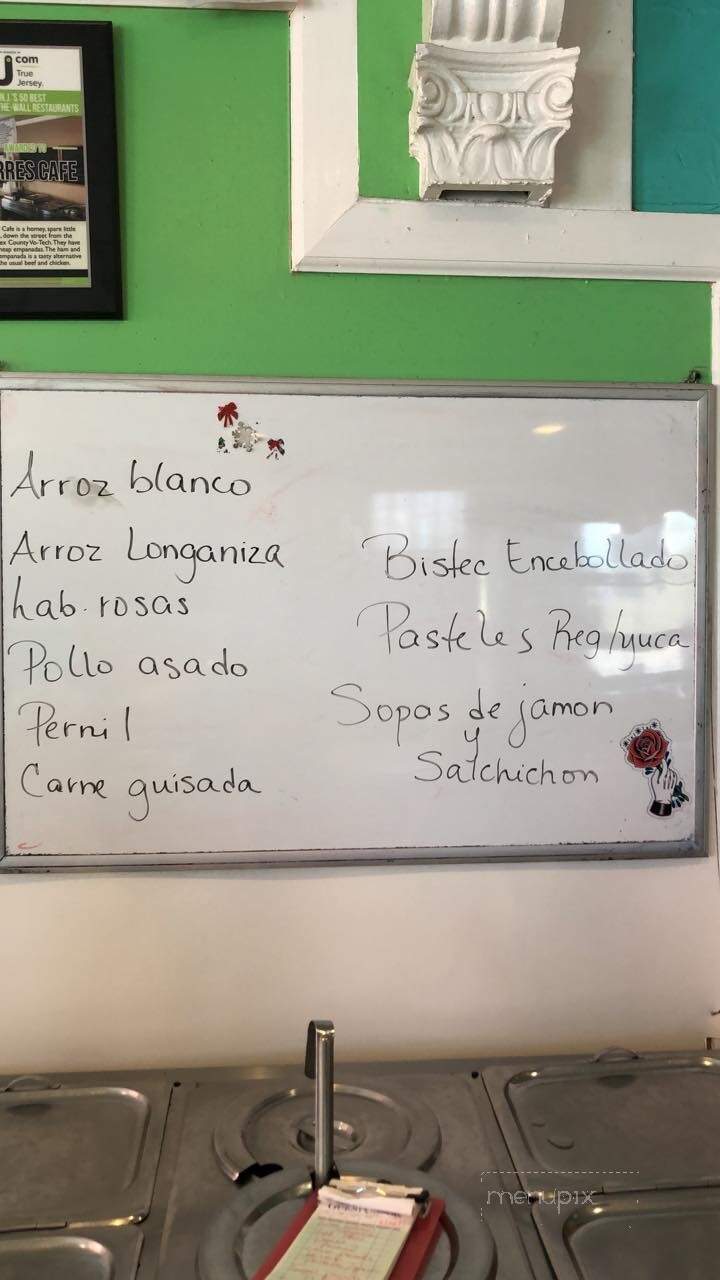 com
True
Jersey.
N.J.'S 50 BEST
THE-WALL RESTAURANTS
AWARDED TO
RRES CAFE
Cafe is a homey, spare little
, down the street from the
ex County Vo-Tech. They have
heap empanadas. The ham and
empanada is a tasty alternative
the usual beef and chicken.
Arroz blanco
Arroz Longaniza
hab. rosas
Pollo asado
Pernil
Carne guisada
Bistec Encebollado
Pasteles Reg/yuca
Sopas de jamon
y
Salchichon
menupix